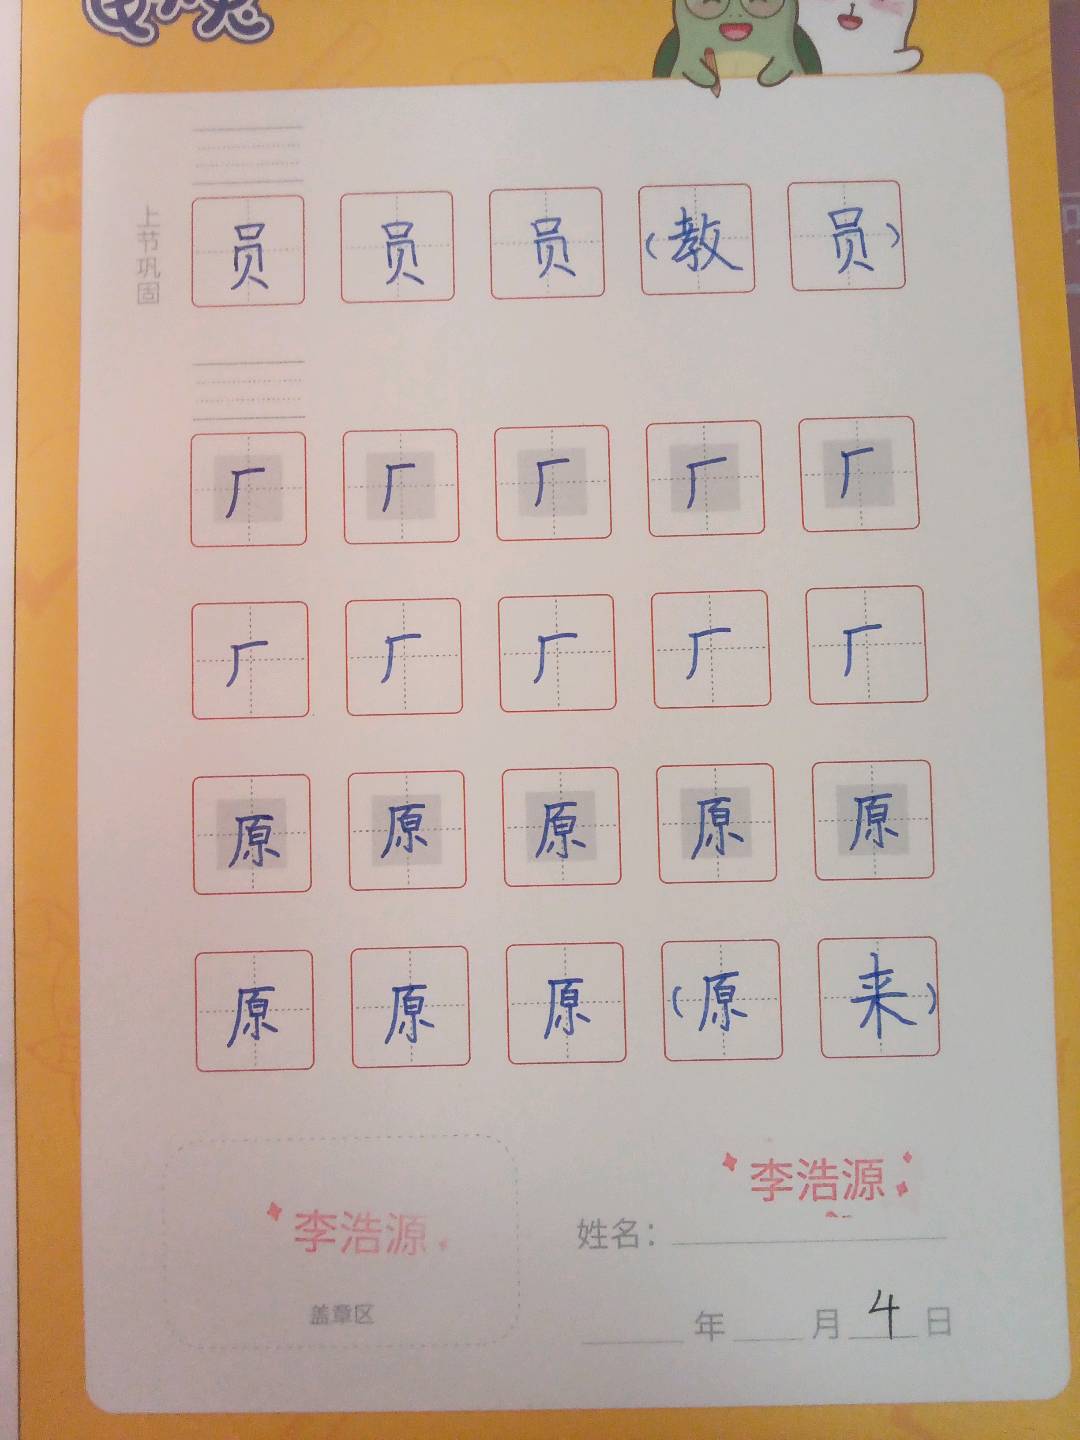 上节巩固
员 员 员 (教 员)
厂 厂 厂 厂 厂
厂 厂 厂 厂 厂
原 原 原 原 原
原 原 原 (原 来)
李浩源
李浩源
姓名:
盖章区
年 月 4 日